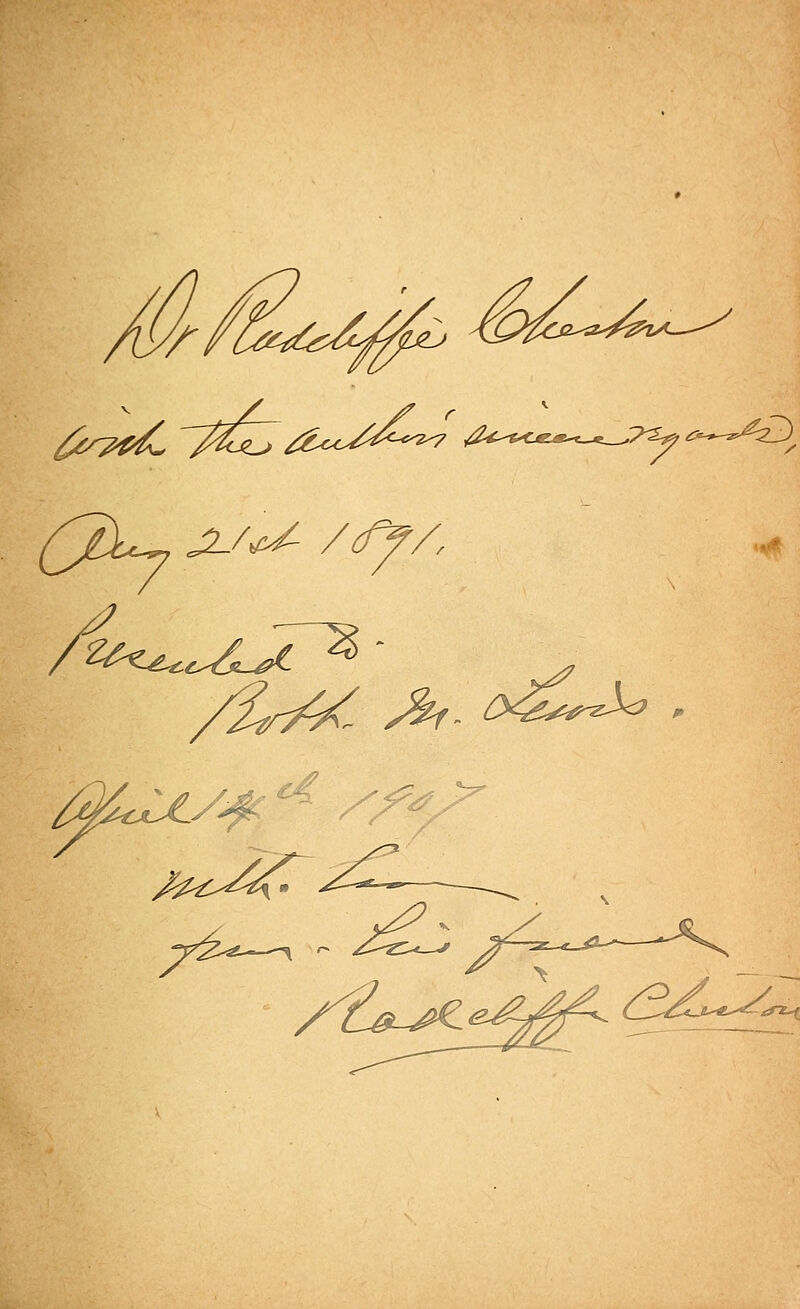 Dr Radcliffe Cheston
with the author's sincere regards,
Aug 21st 1891.
Presented to -
Robt. M. Lewis.
April 14th 1907
with.
from - his friend
Radcliffe Cheston